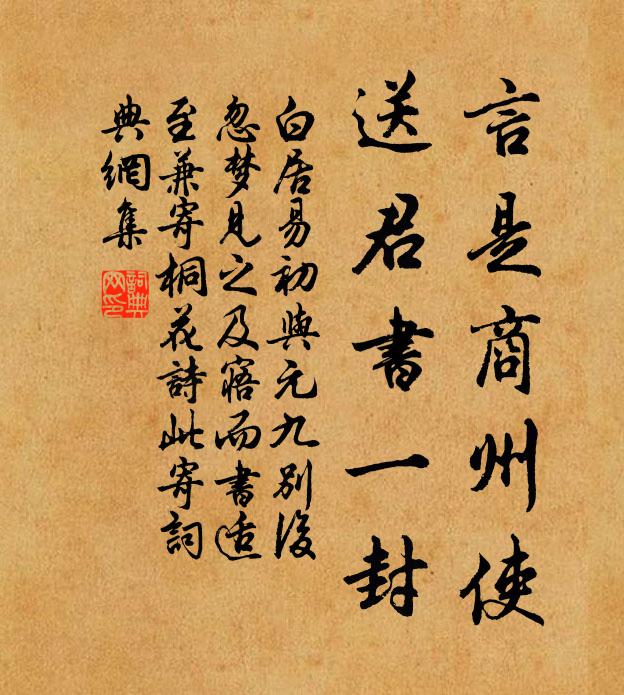 言是商州使
送君書一封
白居易初與元九別後
忽梦見之及寤而書适
至兼寄桐花詩此寄詞
典網集
詞典
网印